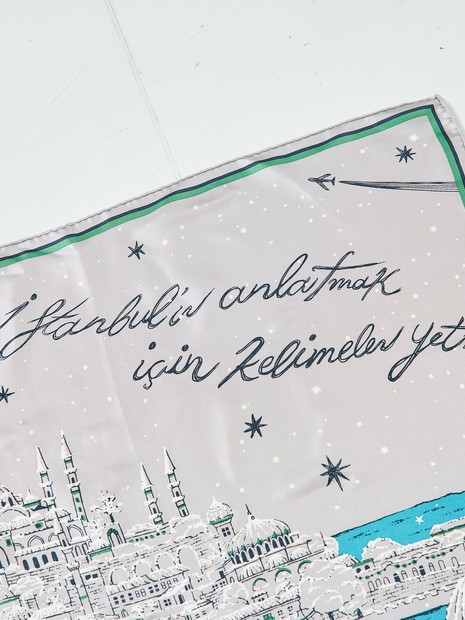 İstanbul'in anlatmak
için kelimeler yet